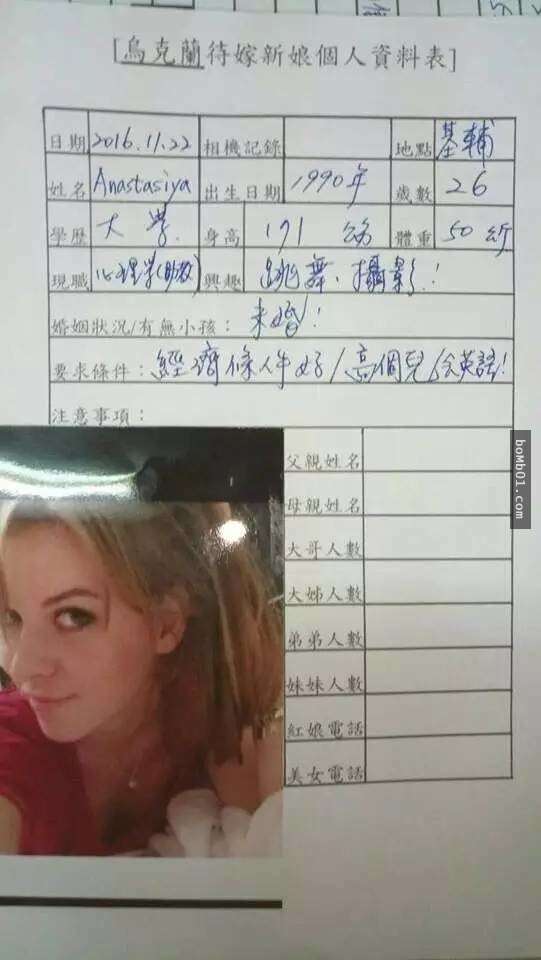 [烏克蘭待嫁新娘個人資料表]
日期 2016.11.22 相機記錄 地點 基輔
姓名 Anastasiya 出生日期 1990年 歲數 26
學歷 大學. 身高 171 公分 體重 50公斤
現職 心理学(助教) 興趣 跳舞、攝影!
婚姻狀況/有無小孩: 未婚!
要求條件: 經濟條件好/高個兒/会英語!
注意事項:
父親姓名
母親姓名
大哥人數
大姊人數
弟弟人數
妹妹人數
紅娘電話
美女電話
boMb01.com